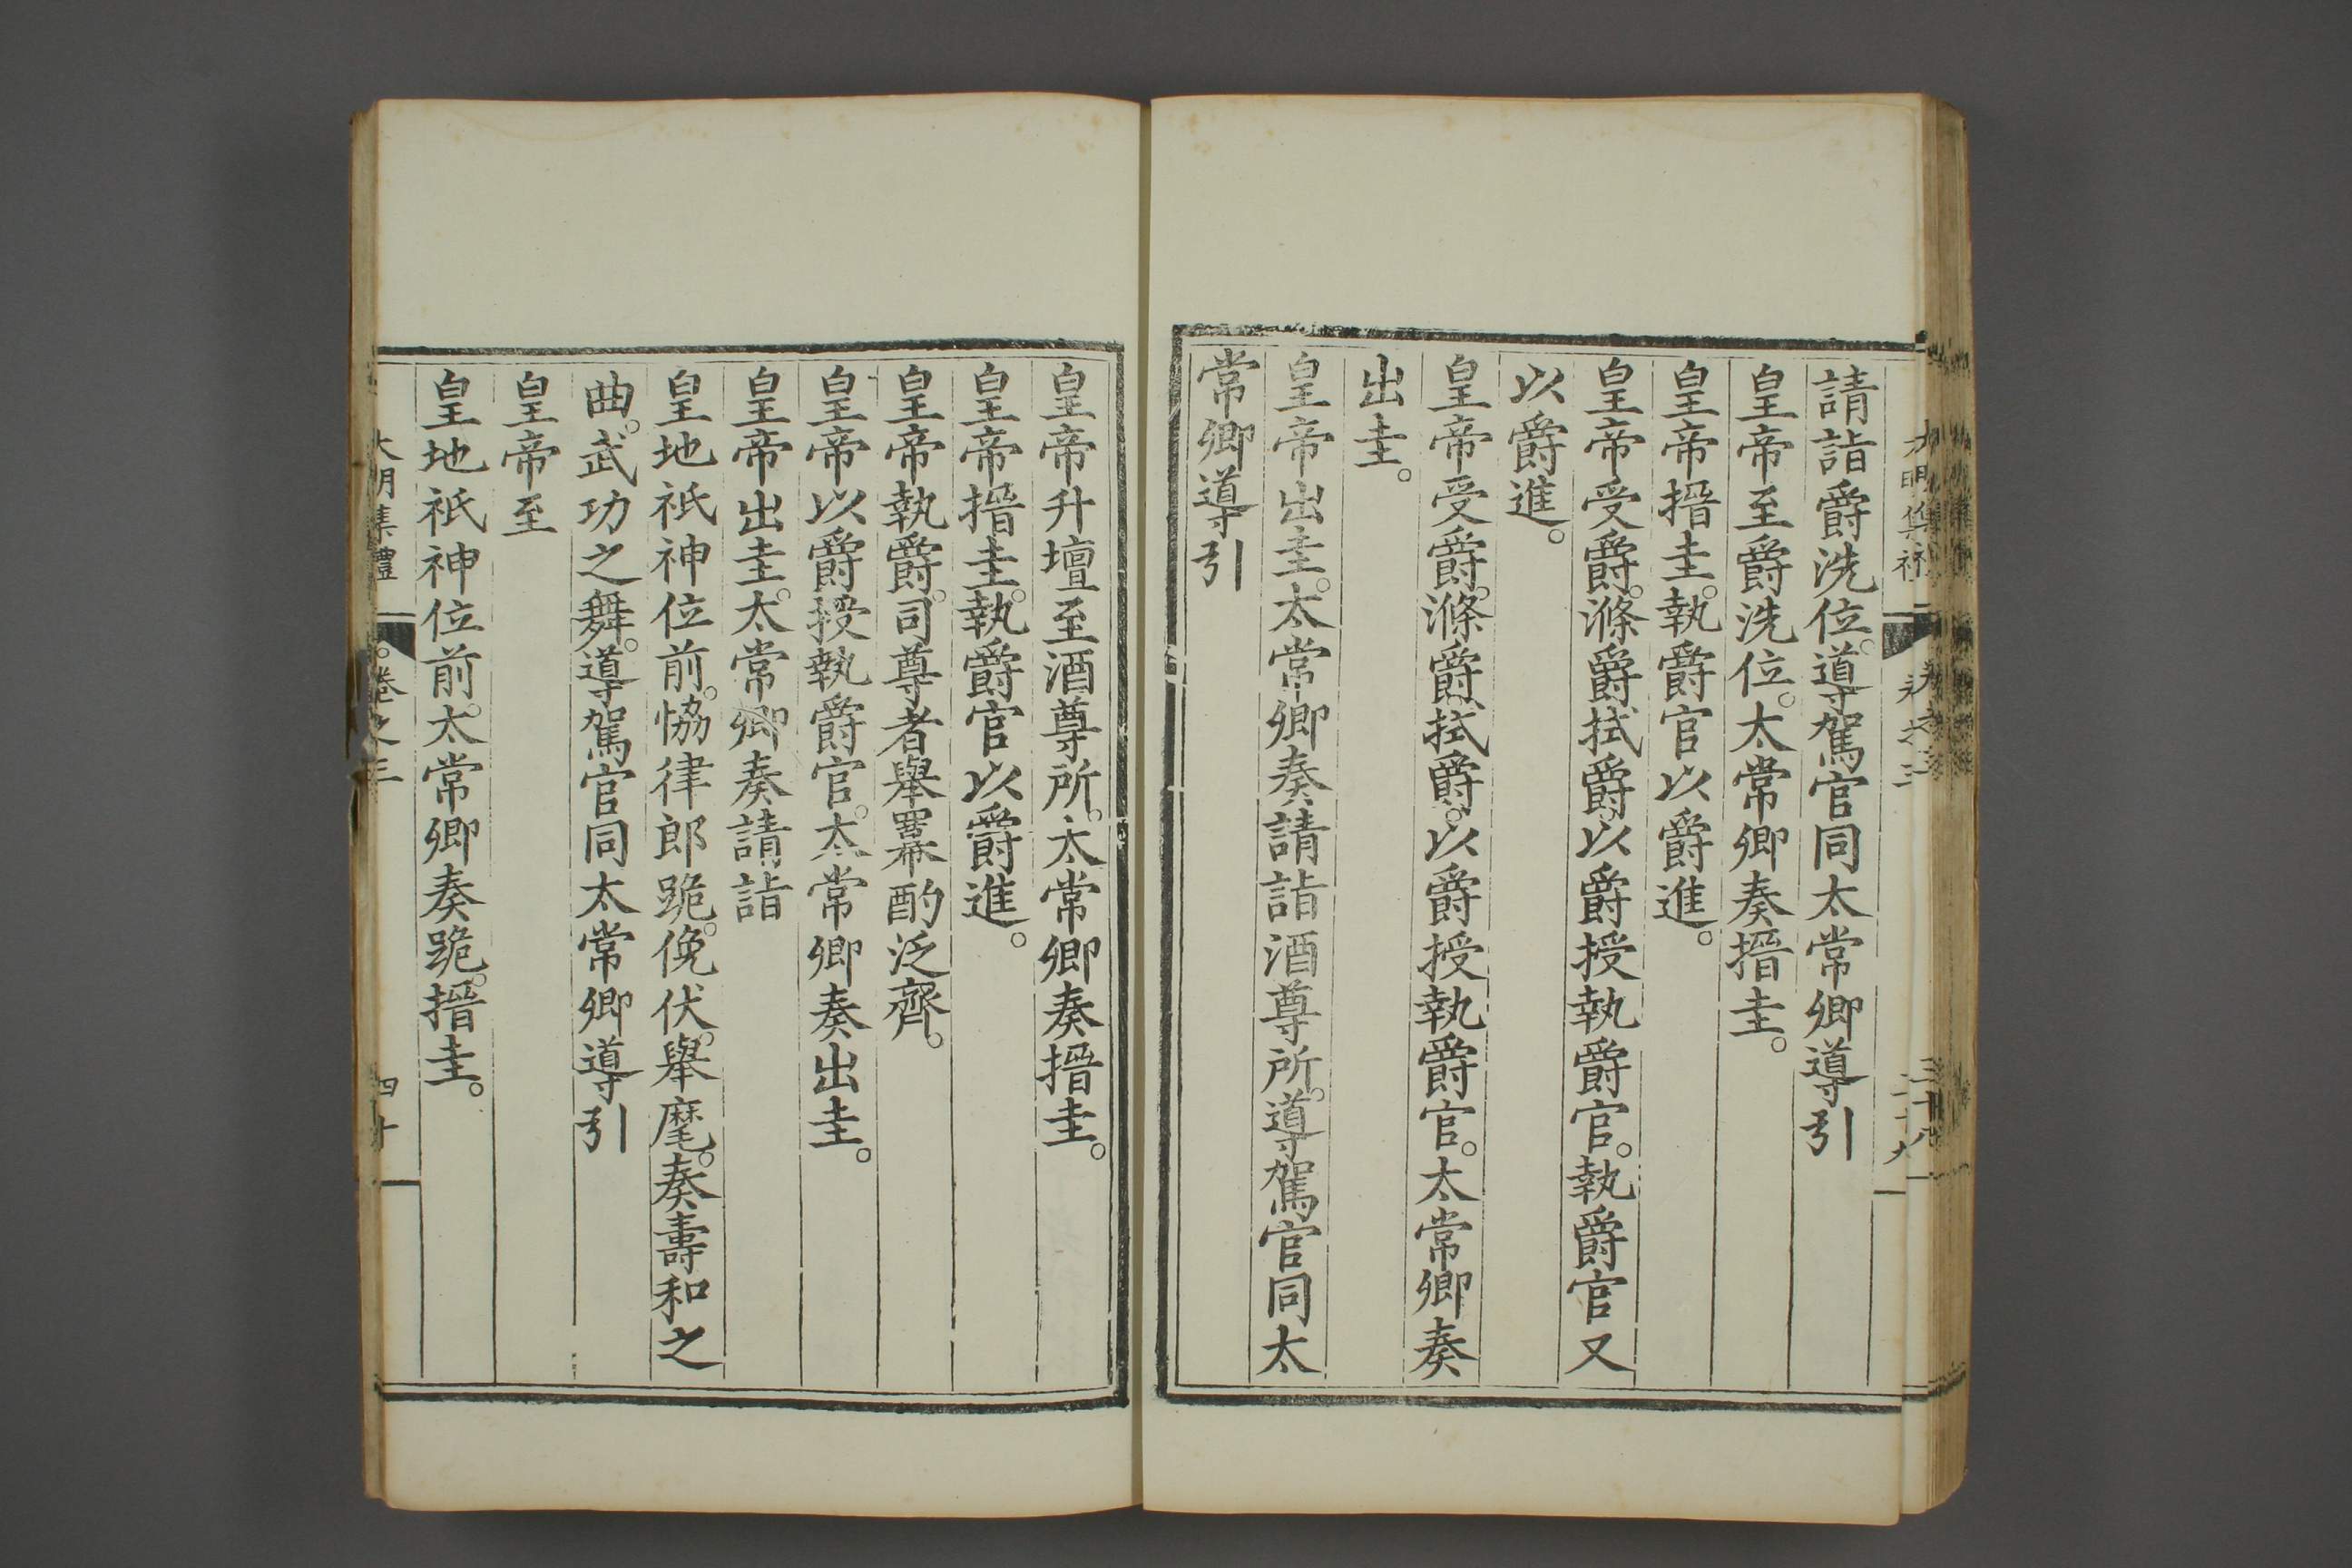 請詣爵洗位。導駕官同太常卿導引
皇帝至爵洗位。太常卿奏搢圭。
皇帝搢圭。執爵官以爵進。
皇帝受爵。滌爵拭爵。以爵授執爵官。執爵官又
以爵進。
皇帝受爵。滌爵拭爵。以爵授執爵官。太常卿奏
出圭。
皇帝出圭。太常卿奏請詣酒尊所。導駕官同太
常卿導引
皇帝升壇至酒尊所。太常卿奏搢圭。
皇帝搢圭。執爵官以爵進。
皇帝執爵。司尊者舉羃酌泛齊。
皇帝以爵授執爵官。太常卿奏出圭。
皇帝出圭。太常卿奏請詣
皇地祇神位前。恊律郎跪。俛伏。舉麾。奏壽和之
曲。武功之舞。導駕官同太常卿導引
皇帝至
皇地祇神位前。太常卿奏跪。搢圭。
大明集禮 卷之三 四十